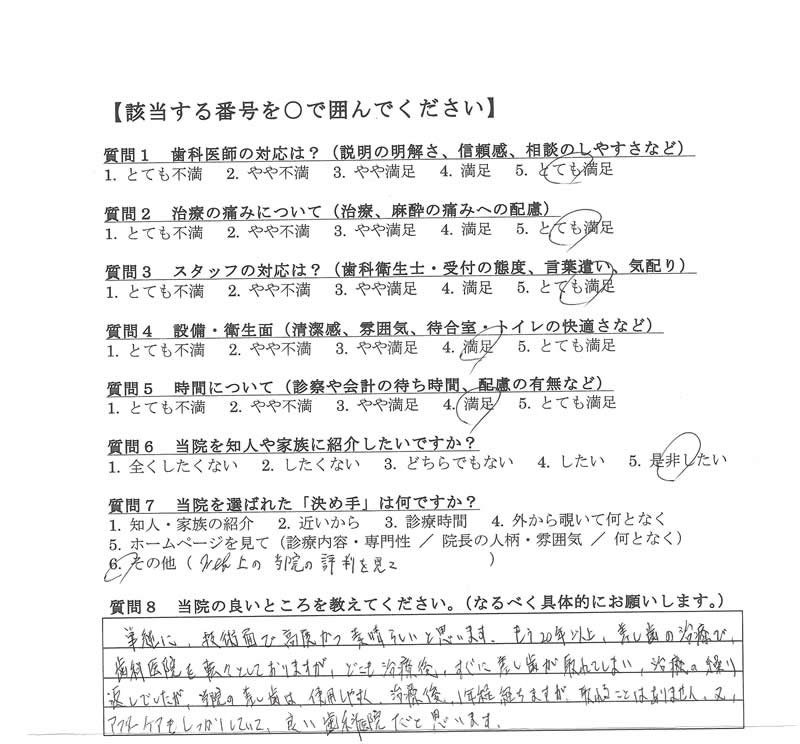 【該当する番号を〇で囲んでください】
質問1 歯科医師の対応は？（説明の明解さ、信頼感、相談のしやすさなど）
1. とても不満 2. やや不満 3. やや満足 4. 満足 5. とても満足
質問2 治療の痛みについて（治療、麻酔の痛みへの配慮）
1. とても不満 2. やや不満 3. やや満足 4. 満足 5. とても満足
質問3 スタッフの対応は？（歯科衛生士・受付の態度、言葉遣い、気配り）
1. とても不満 2. やや不満 3. やや満足 4. 満足 5. とても満足
質問4 設備・衛生面（清潔感、雰囲気、待合室・トイレの快適さなど）
1. とても不満 2. やや不満 3. やや満足 4. 満足 5. とても満足
質問5 時間について（診察や会計の待ち時間、配慮の有無など）
1. とても不満 2. やや不満 3. やや満足 4. 満足 5. とても満足
質問6 当院を知人や家族に紹介したいですか？
1. 全くしたくない 2. したくない 3. どちらでもない 4. したい 5. 是非したい
質問7 当院を選ばれた「決め手」は何ですか？
1. 知人・家族の紹介 2. 近いから 3. 診療時間 4. 外から覗いて何となく
5. ホームページを見て（診療内容・専門性 ／ 院長の人柄・雰囲気 ／ 何となく）
6. その他（Web上の当院の評判を見て ）
質問8 当院の良いところを教えてください。（なるべく具体的にお願いします。）
単純に、技術面で高度かつ素晴らしいと思います。もう20年以上、差し歯の治療で、
歯科医院を転々としておりますが、どこも治療後、すぐに差し歯が取れてしまい、治療の繰り
返しでしたが、当院の差し歯は、使用しやすく、治療後、1年経ちますが、取れることはありません。又、
アフターケアもしっかりしていて、良い歯科医院だと思います。